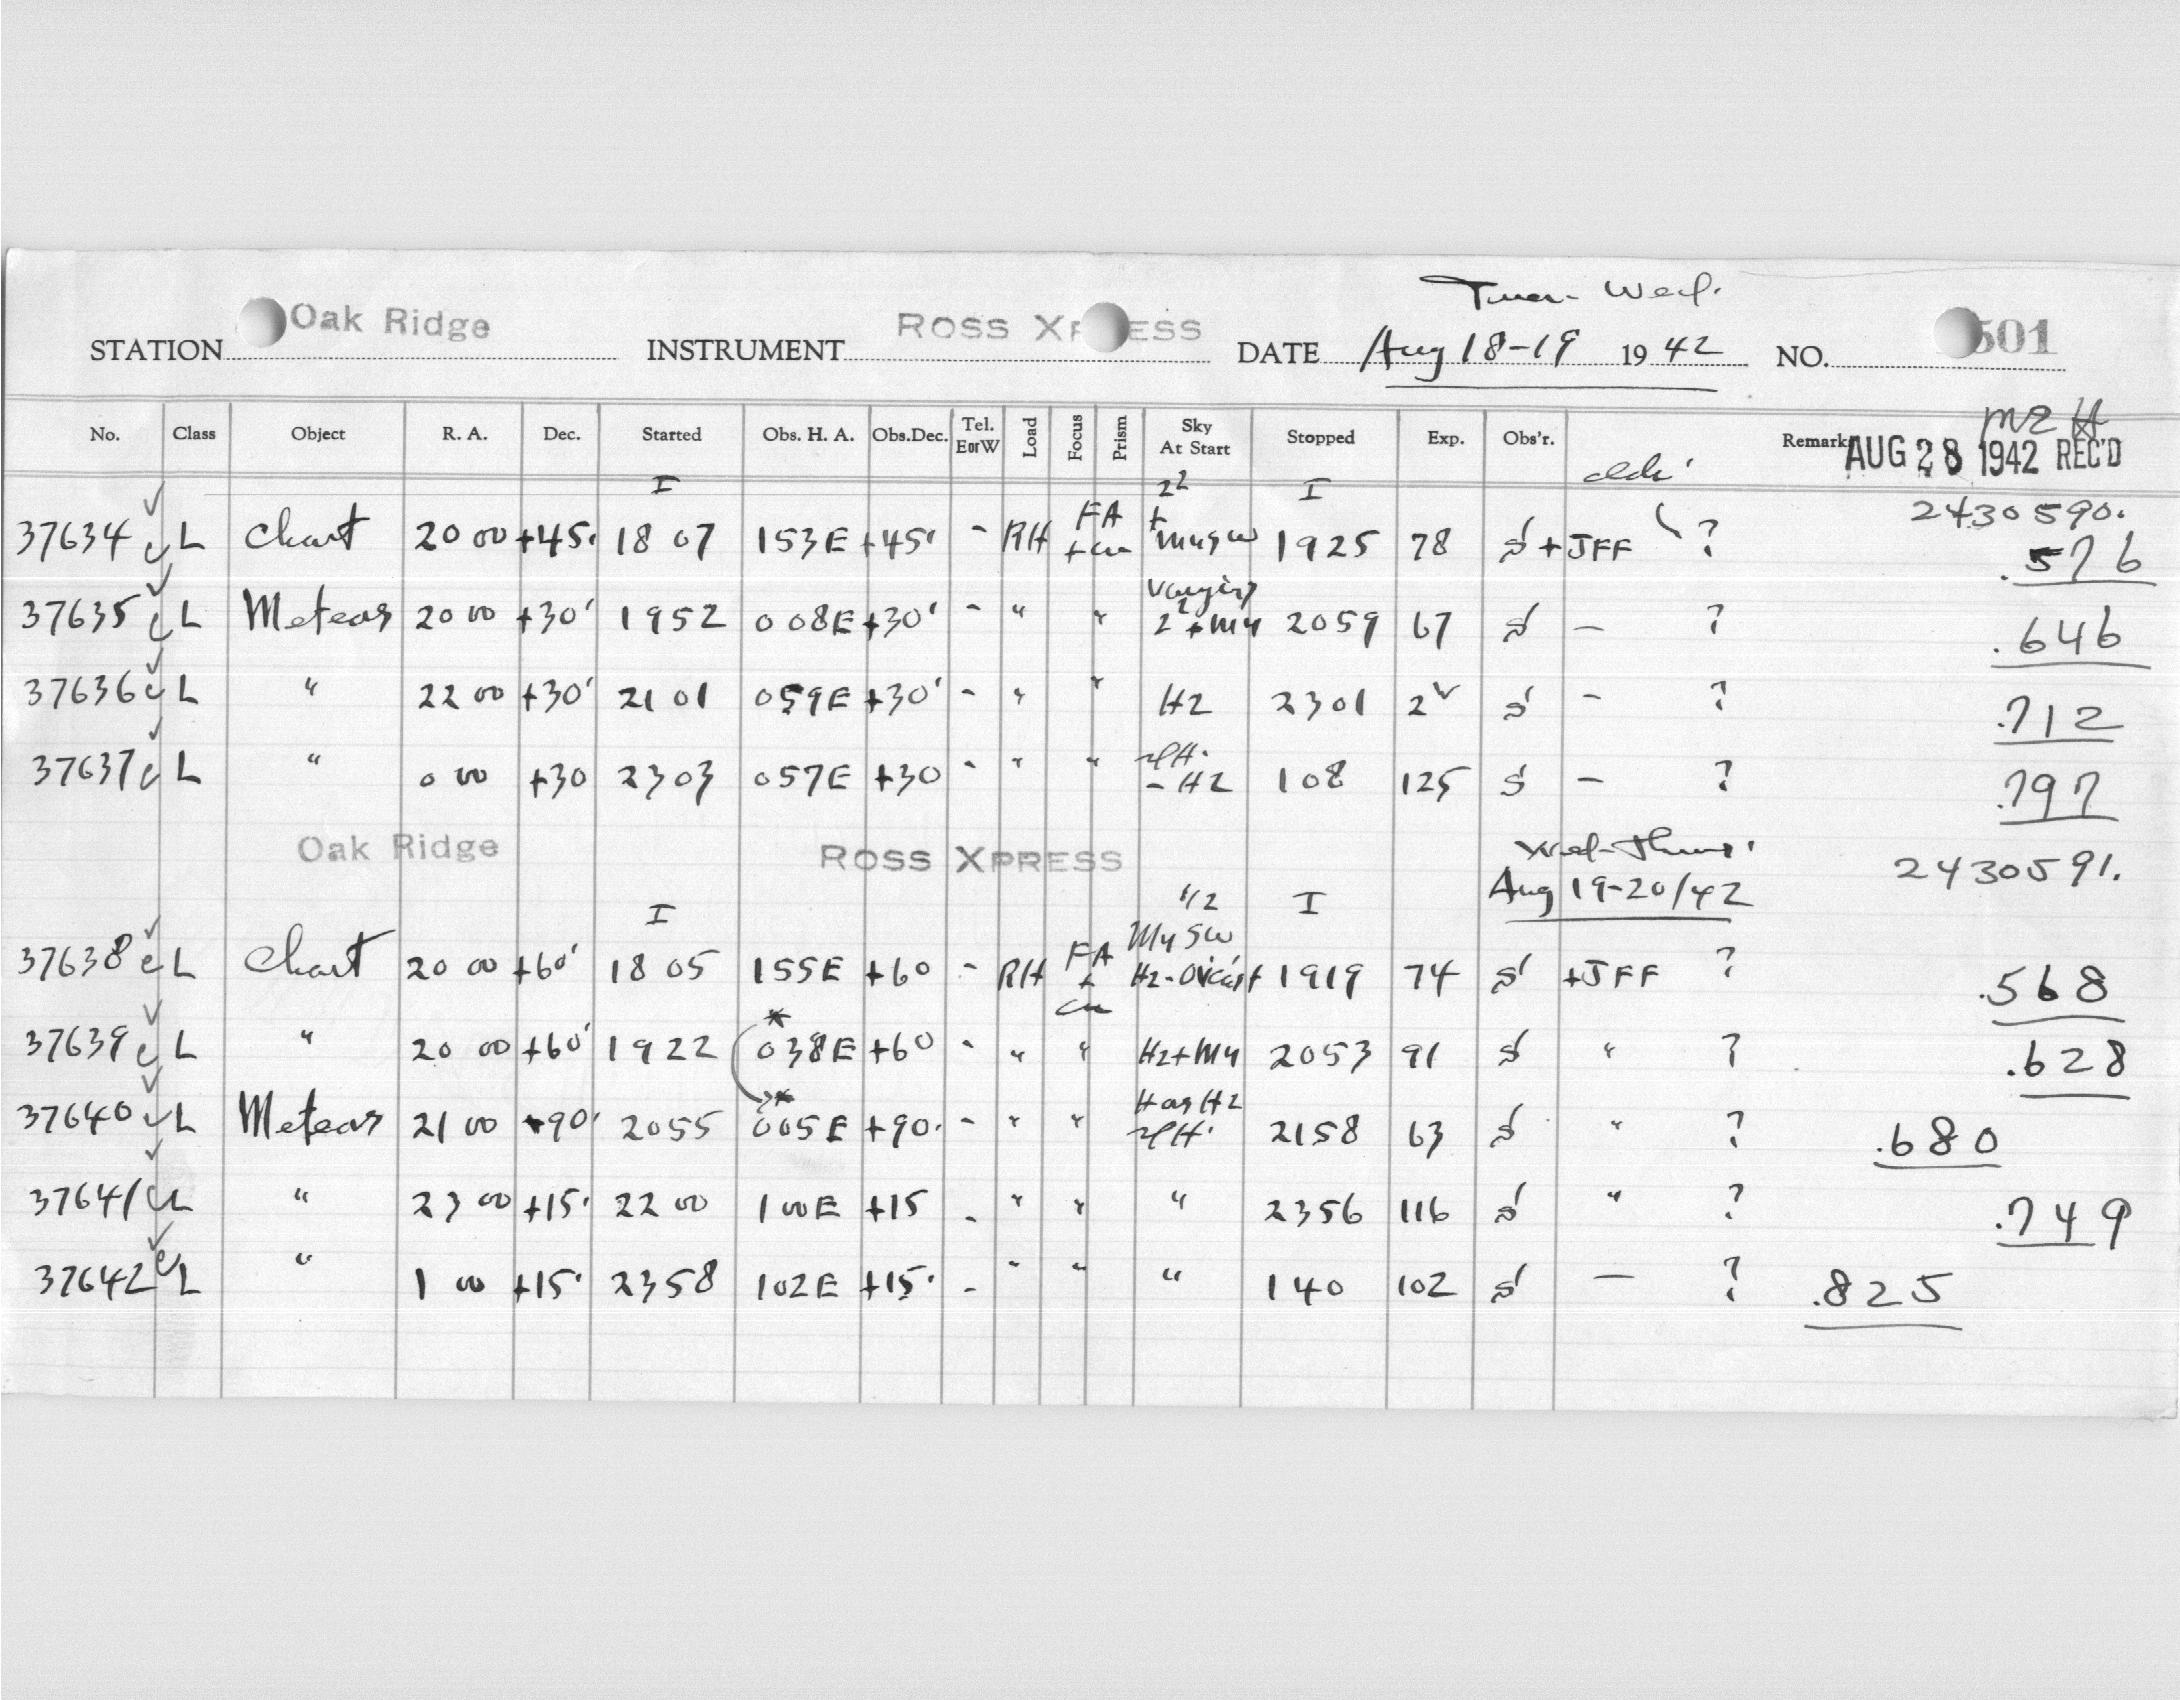 Tues- Wed.
STATION Oak Ridge INSTRUMENT ROSS XPRESS DATE Aug 18-19 1942 NO. 501
No. Class Object R. A. Dec. Started Obs. H. A. Obs.Dec. Tel. EorW Load Focus Prism Sky At Start Stopped Exp. Obs'r. Remarks
AUG 28 1942 REC'D
I 2² I 2430590.
37634 L Chart 20 00 +45° 18 07 153E +45° - RH FA + 1925 78 S + JFF ? .576
Varying
37635 L Meteors 20 00 +30° 1952 008E +30° - " " 2² + My 2059 67 S — ? .646
37636 L " 22 00 +30° 2101 059E +30° - " " HZ 2301 2 S - ? .712
37637 L " 0 00 +30 2303 057E +30 - " " - HZ 108 125 S - ? .797
Oak Ridge ROSS XPRESS Wed-Thurs. 2430591.
Aug 19-20/42
I 1/2 I
My SW
37638 L Chart 20 00 +60° 18 05 155E +60 - RH FA + Hz- 1919 74 S +JFF ? .568
37639 L " 20 00 +60° 1922 *038E +60 - " " Hz+My 2053 91 S " ? .628
37640 L Meteors 21 00 +90° 2055 *005E +90° - " " 2158 63 S " ? .680
37641 L " 23 00 +15° 22 00 1 00E +15 - " " " 2356 116 S " ? .749
37642 L " 1 00 +15° 2358 102E +15° - " " " 140 102 S — ? .825